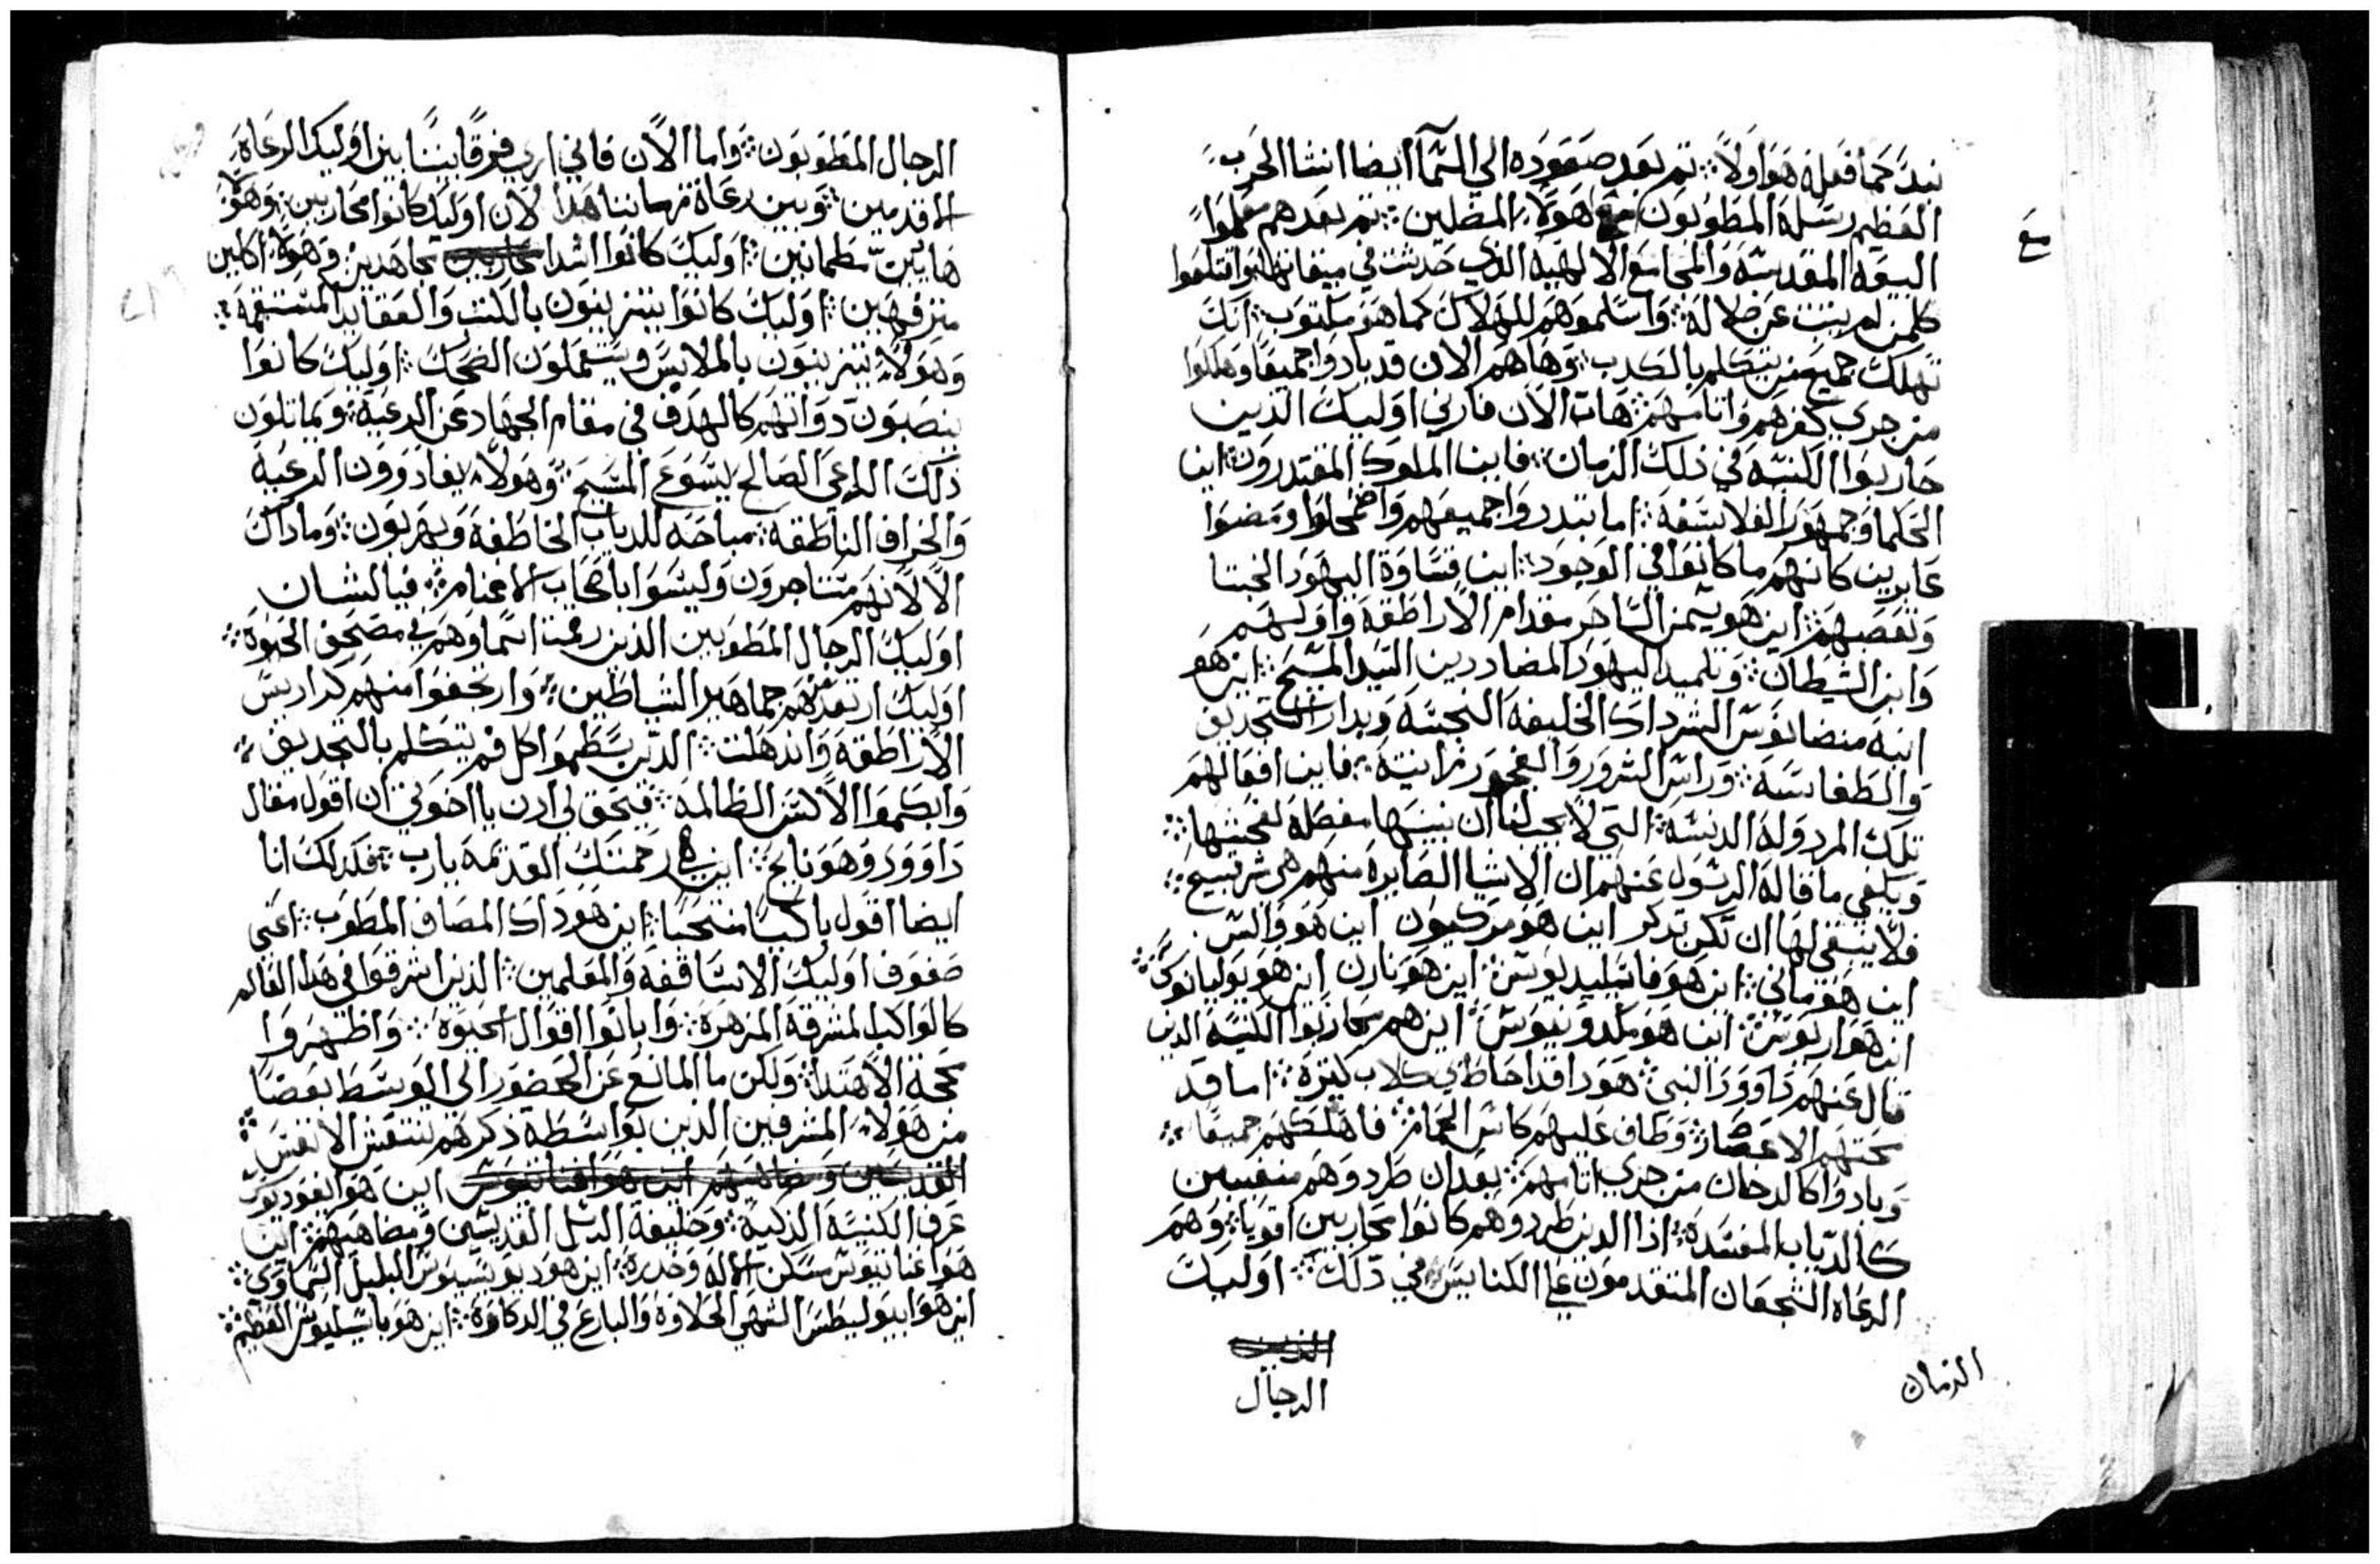 نبد كما فعله هو اولاً ⁘ تم بعد صعوده الي السما ايضا انشا الحرب
العظيم رسله المطوبون مع هولاء المضلين ⁘ تم بعدهم معلموا
مع
البيعه المقدسه والمجامع الالهيه الذي حدثت في ميقاتها واقتلعوا
كلمن لم يتب عن ضلاله ⁘ واسلموهم للهلاك كما هو مكتوب ⁘ انك
تهلك جميع من يتكلم بالكدب ⁘ وها هم الان قد بادوا جميعًا وهلكوا
من جري كفرهم واتامهم ⁘ هات الان فارني اوليك الذين
حاربوا الكنيسه في ذلك الزمان ⁘ فاين الملوك المقتدرون ⁘ اين
الحكما وجمهور الفلاسفه ⁘ اما تبددوا جميعهم واضمحلوا ومضوا
عابرين كانهم ما كانوا في الوجود ⁘ اين قساوة اليهود الخبتا
وتعصبهم ⁘ اين هو سيمن الساحر مقدام الاراطقه واولهم
وابن الشيطان ⁘ وتلميد اليهود المضاددين السيد المسيح ⁘ اين هو
ابنه منضانوس الشرداك الخليفه النجسه وبدار التجديف
والطغاسه ⁘ وراس الشرور والفجور زانيته ⁘ فاين افعالهم
تلك المردوله الدنسه ⁘ التي لا يجب لنا ان نبينها مفصله لفحشها ⁘
ويكفي ما قاله الرسول عنهم ان الاشيا الصايره منهم هي شر قبيح ⁘
فلا ينبغي لها ان تكن تدكر اين هو مركيون اين هو والس
اين هو ماني ⁘ اين هو فاسليديوس ⁘ اين هو نارن اين هو يوليانوس ⁘
اين هو اريوس ⁘ اين هو مكدونيوس ⁘ اين هم محاربوا الكنيسه الذين
قال عنهم داوود النبي ⁘ هودا قد احاط بي كلاب كتيره ⁘ اما قد
محتهم الاعصار ⁘ وطاف عليهم كاس الحمام ⁘ فاهلكهم جميعًا ⁘
وبادوا كالدخان من جري اتامهم ⁘ بعد ان طردوهم منغيبين
كالدياب المفسده ⁘ اذا الدين طردوهم كانوا محاربين اقويا ⁘ وهم
الرعاه الشجعان المتقدمون علي الكنايس في ذلك ⁘ اوليك
الزمان
الرجال
الرجال المطوبون ⁘ واما الان فاني اري فرقًا بينًا بين اوليك الرعاة
الاقدمين ⁘ وبين رعاة زماننا هدا لان اوليك كانوا محاربين ⁘ وهولا
هايين مطمانين ⁘ اوليك كانوا اشدا مجاهدين ⁘ وهولاء اكلين
مترفهين ⁘ اوليك كانوا يتزينون بالكتب والعقايد المستقيمه ⁘
وهولاء يتزينون بالملابس ويستعملون الضحك ⁘ اوليك كانوا
ينصبون دواتهم كالهدف في مقام الجهاد عن الرعية ⁘ ويماتلون
ذلك الراعي الصالح يسوع المسيح ⁘ وهولاء يغادرون الرعيه
والخراف الناطقه ⁘ مباحه للدياب الخاطفة ويهربون ⁘ وما داك
الا لانهم مستاجرون وليسوا باصحاب الاغنام ⁘ فيا لشان
اوليك الرجال المطوبين الذين رقمت اسماوهم في مصحف الحيوه ⁘
اوليك ارتعدتهم جماهير الشياطين ⁘ وارتجفوا منهم كراريس
الاراطقه واندهلت ⁘ الذين سطموا كل فم يتكلم بالتجديف ⁘
وابكموا الالسن الظالمه ⁘ فيحق لي ادن يا اخوتي ان اقول مقال
داوود وهو نايح ⁘ اين هي رحمتك القديمه يارب ⁘ فكدلك انا
ايضا اقول باكيًا منتحبًا ⁘ اين هو داك المصاف المطوب ⁘ اعني
صفوف اوليك الاساقفه والمعلمين ⁘ الذين اشرقوا في هدا العالم
كالكواكب المشرقه المزهره ⁘ وابانوا اقوال الحيوه ⁘ واظهروا
محجة الاهتدا ⁘ ولكن ما المانع عن الحضور الي الوسط بعضًا
من هولاء المشرفين الدين بواسطة ذكرهم تنتقش الانفس ⁘
اين هو ايغوديوس
عرف الكنيسه الذكيه ⁘ وخليفة الرسل القديسين ومضاهيهم ⁘ اين
هو اغناتيوس مسكن الاله وخدره ⁘ اين هو ديونيسيوس البلبل السماوي ⁘
اين هو ايبوليطس الشهي الحلاوة والبارع في الدكاوة ⁘ اين هو باسيليوس العظيم ⁘